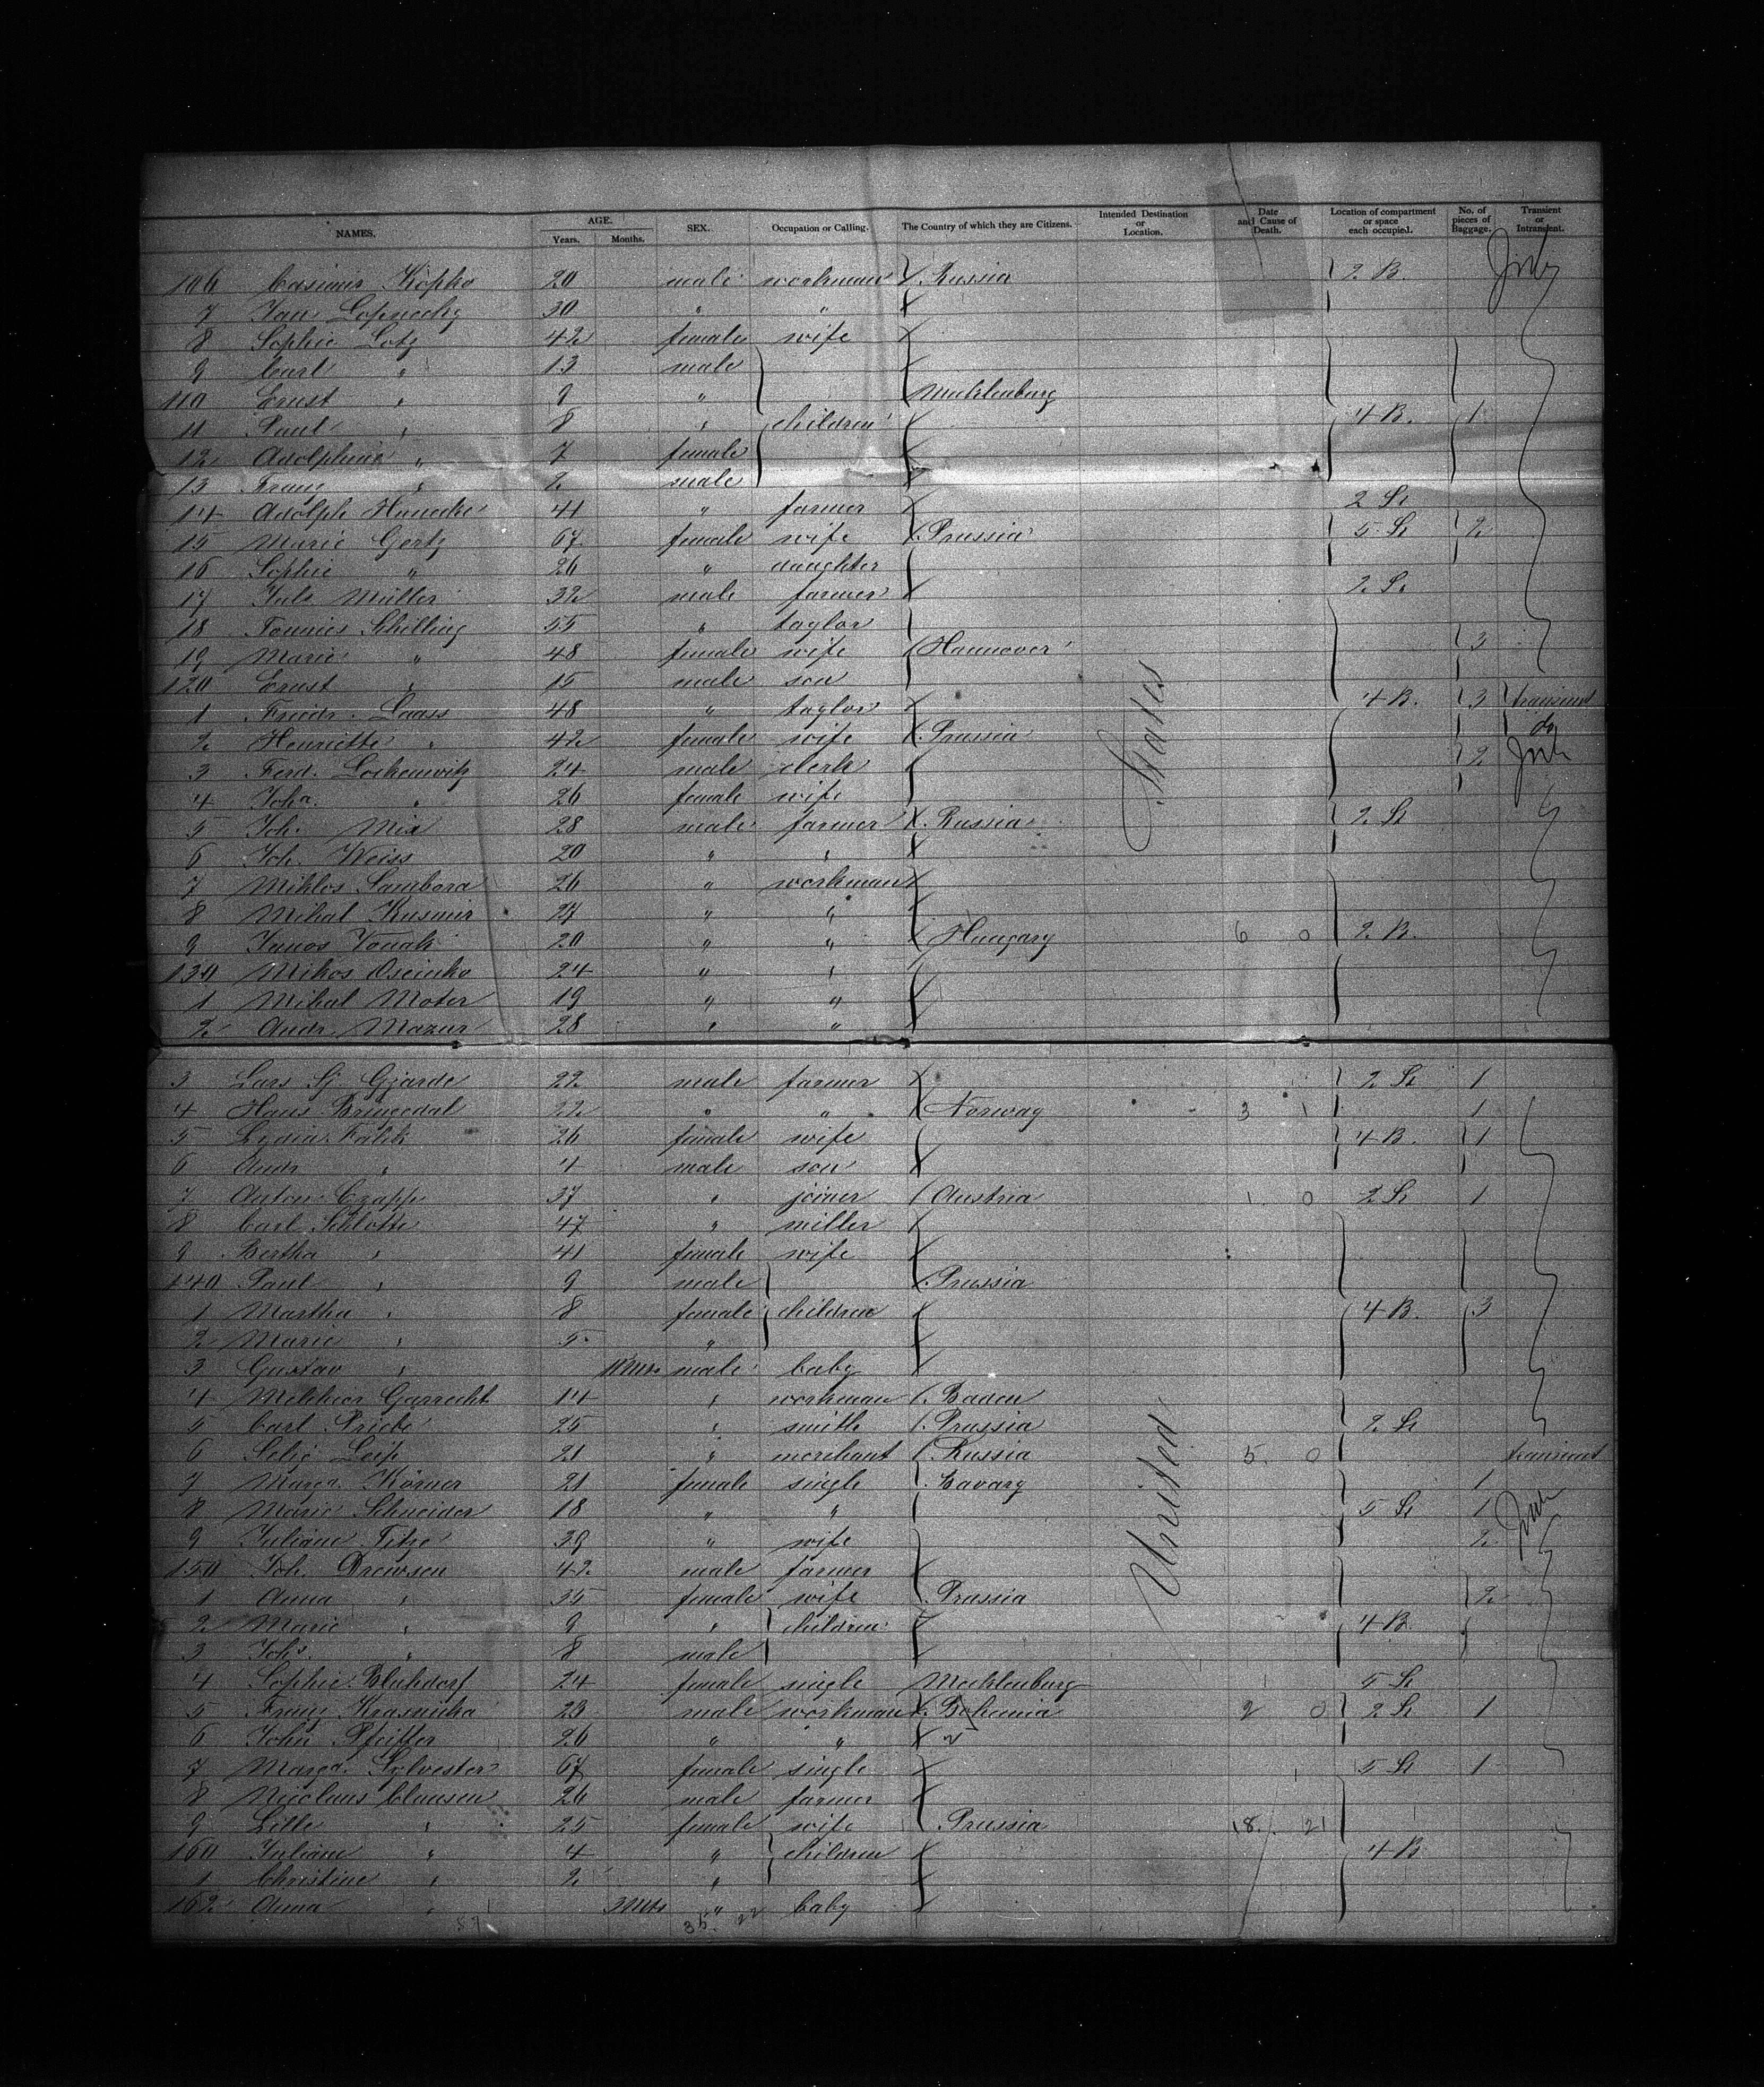 NAMES. AGE. Years. Months. SEX. Occupation or Calling. The Country of which they are Citizens. Intended Destination or Location. Date and Cause of Death. Location of compartment or space each occupied. No. of pieces of Baggage. Transient or Intransient.
106 Casimir Kopko 20 male workman Russia 2 B.
7 Jan 30 " "
8 Sophie Lotz 42 female wife
9 Carl " 13 male
110 Ernst " 9 " Mecklenburg
11 Paul " 8 " children 4 B. 1
12 Adolphine " 7 female
13 Franz " 2 male
14 Adolph 41 " farmer 2 St
15 Marie Gertz 67 female wife Prussia 5 St 2
16 Sophie " 26 " daughter
17 Juls Müller 32 male farmer 2 St
18 Tönnies Schilling 55 " taylor
19 Marie " 48 female wife Hannover 3
120 Ernst " 15 male son
1 Friedr. Laass 48 " taylor 4 B. 3 transient
2 Henriette " 42 female wife Prussia do
3 Ferd. Loskenwitz 24 male clerk 2
4 Joha. " 26 female wife
5 Joh. Mix 28 male farmer Russia 2 St
6 Joh. Weiss 20 " "
7 Miklos Sambora 26 " workman
8 Mihal Kusmir 27 " "
9 Janos Vonak 20 " " Hungary 6 0 2 B.
130 Mikos 24 " "
1 Mihal Moter 19 " "
2 Andr. Mazur 28 " "
3 Lars Sj. Gjarde 22 male farmer 2 St 1
4 Hans Bringedal 22 " " Norway 3 1 1
5 Lydia Falck 26 female wife 4 B. 1
6 Andr. " 4 male son
7 Anton Czappe 37 " joiner Austria 1 0 2 St 1
8 Carl Schlotte 47 " miller
9 Bertha " 41 female wife
140 Paul " 9 male Prussia
1 Martha " 8 female children 4 B. 3
2 Marie " 5 "
3 Gustav " Mts male baby
4 Melchior Garrecht 14 " workman Baden
5 Carl Priebe 25 " smith Prussia 2 St
6 Selig Leip 21 " merchant Russia 5 0 transient
7 Marga. Körner 21 female single Bavary 1
8 Marie Schneider 18 " " 5 St 1
9 Juliane Titze 39 " wife 2
150 Joh. Drewsen 42 male farmer
1 Anna " 35 female wife Prussia 2
2 Marie " 9 " children 4 B.
3 Johs. " 8 male
4 Sophie Bluhdorf 24 female single Mecklenburg 5 St
5 Franz Krasnicka 23 male workman Bohemia 2 0 2 St 1
6 John Pfeiffer 26 " "
7 Marga. Sylvester 67 female single 5 St 1
8 Nicolaus Clausen 26 male farmer
9 Lille " 25 female wife Prussia 18 21
160 Juliane " 4 " children 4 B
1 Christine " 2 "
162 Anna " 3 Mts " baby
United States